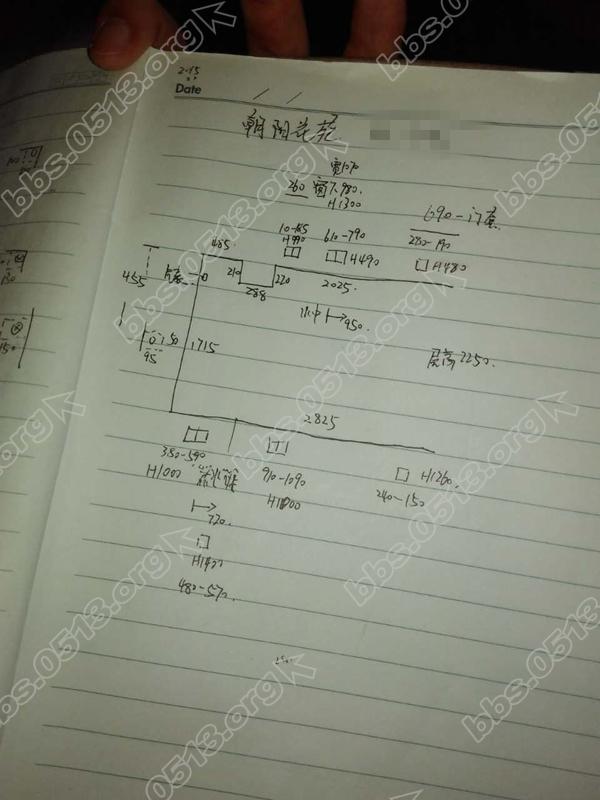 2.15
Date / /
朝阳花苑
宽1070
260 窗下980.
H1300
690-门底
10-185 610-790 280-190
H990 H490 H480
485
455 210 220 2025
288
水中 950.
50 1715 层高2250.
95
2825
380-590 910-1090 H1260.
H1000 H1000 240-150
720.
H1400
480-570.
bbs.0513.org
bbs.0513.org
bbs.0513.org
bbs.0513.org
bbs.0513.org
bbs.0513.org
bbs.0513.org
bbs.0513.org
bbs.0513.org